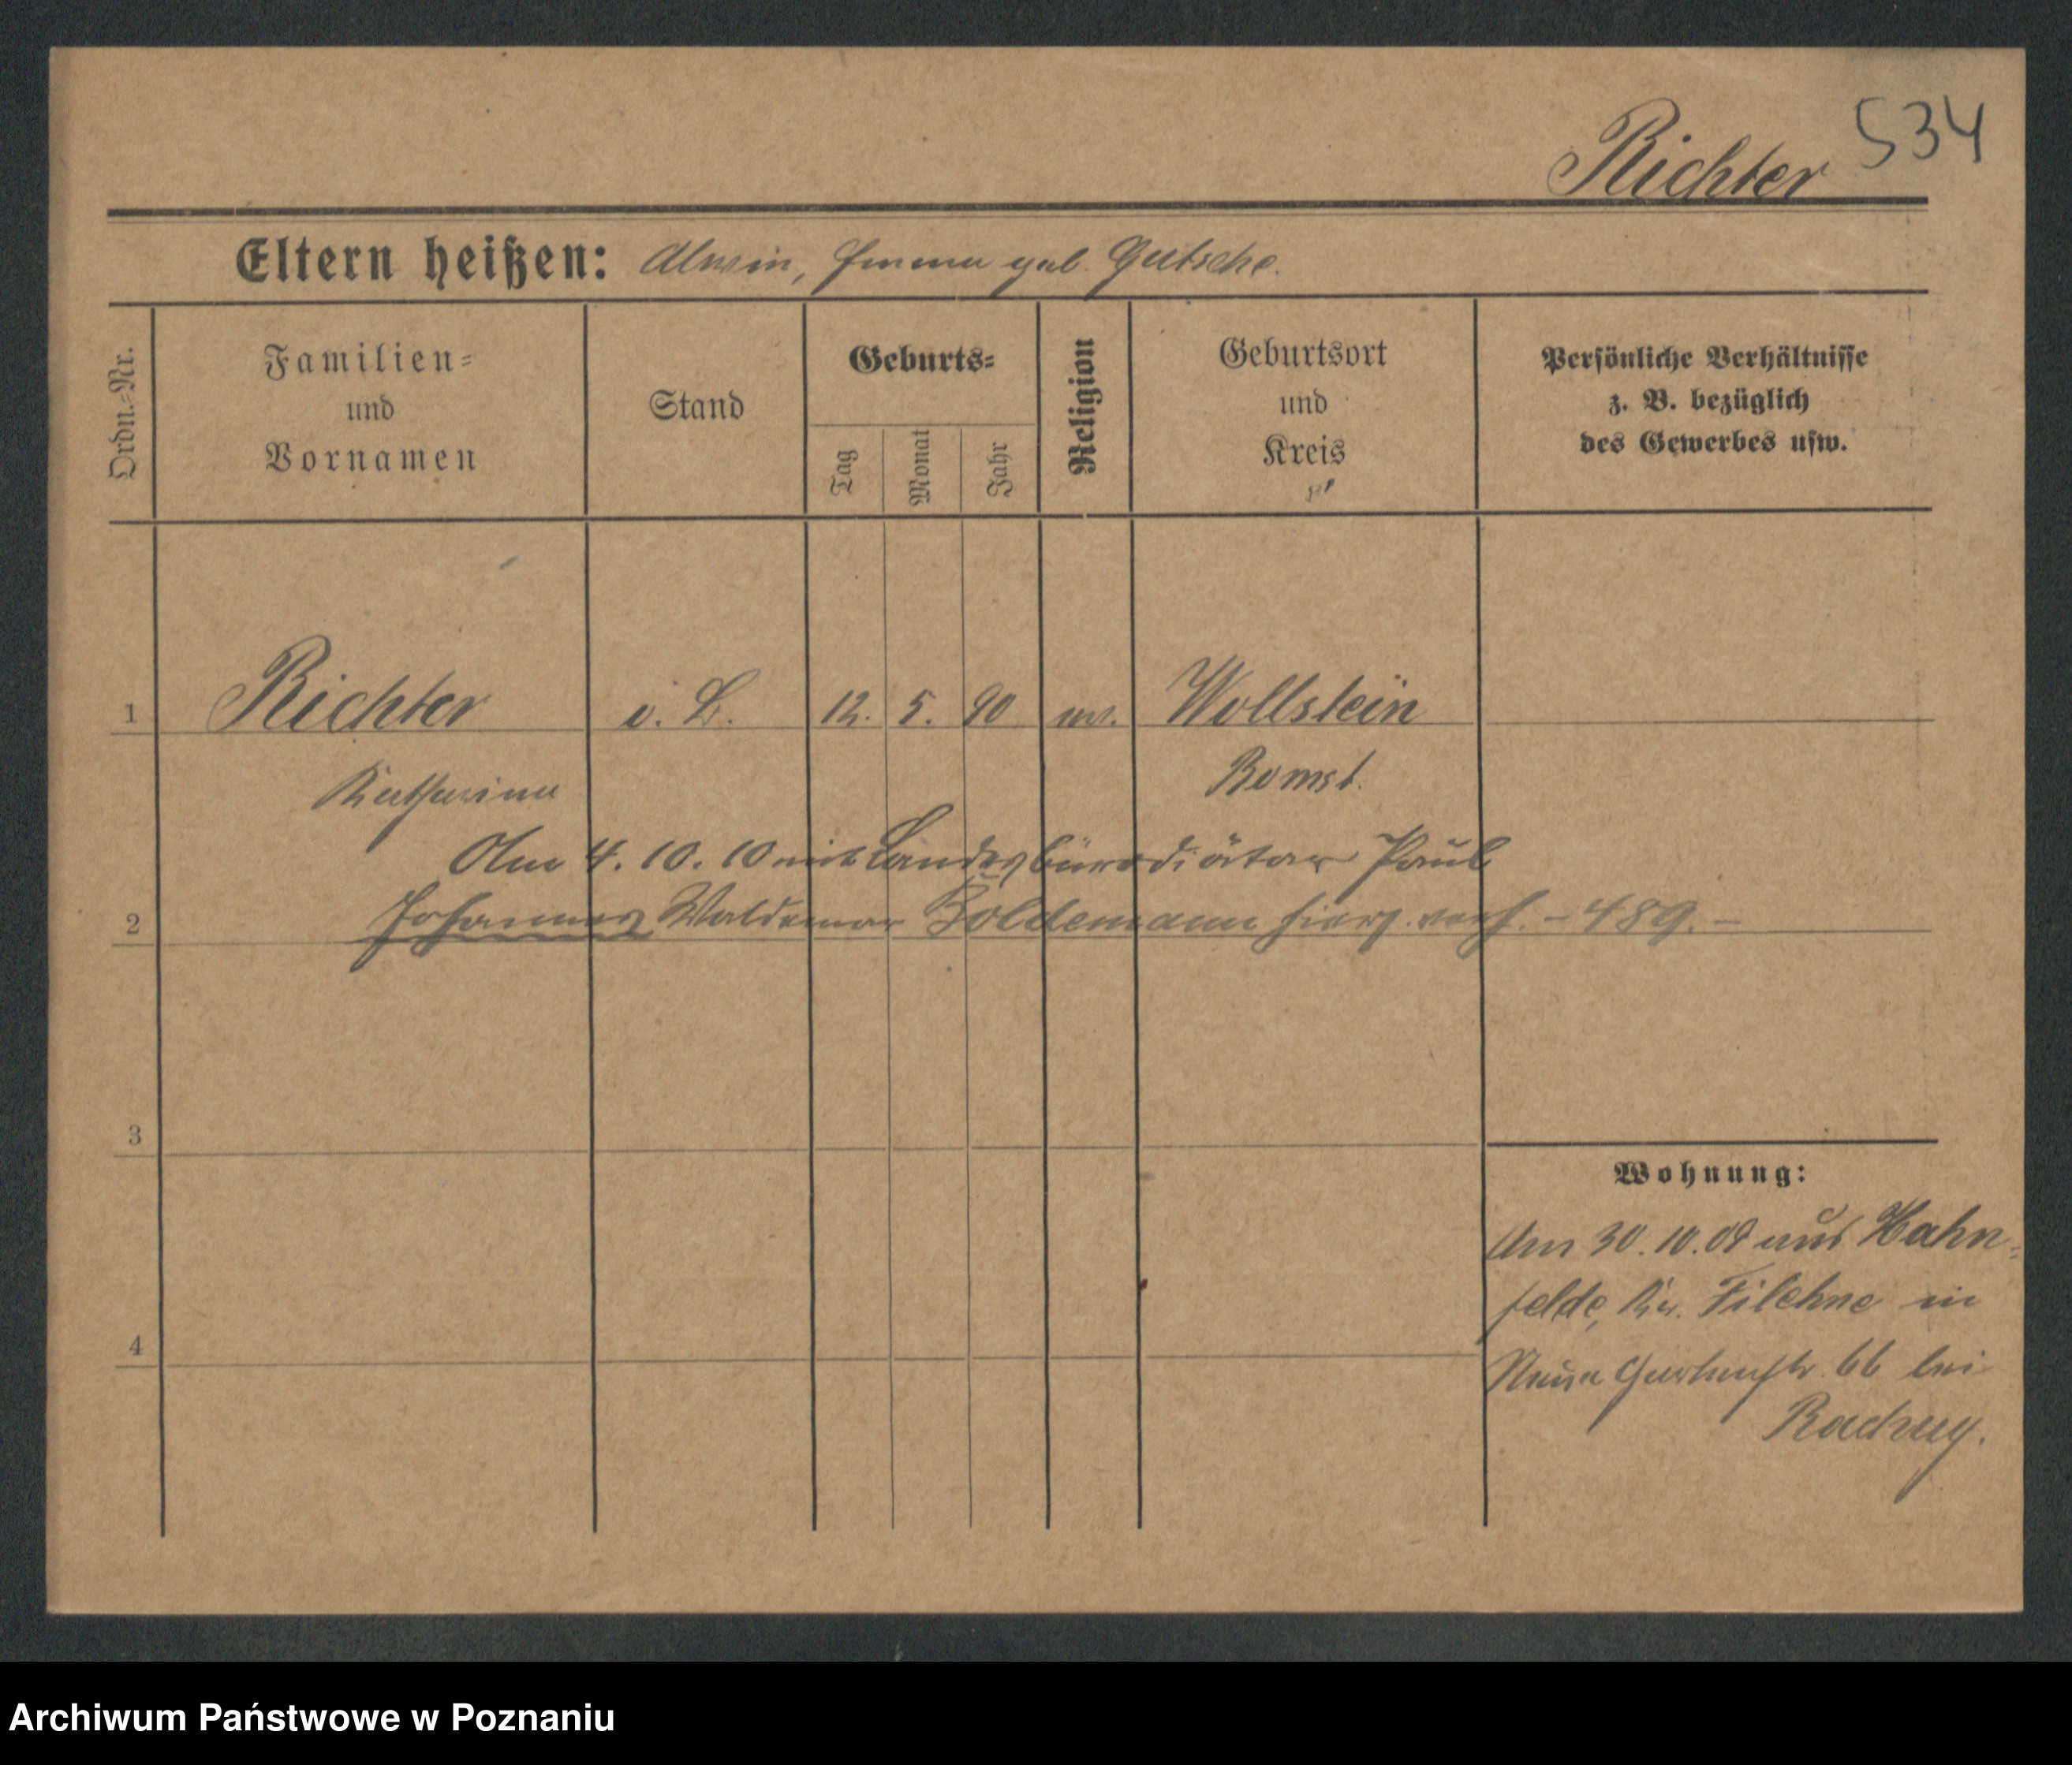 534
Richter
Eltern heißen: Alwin, Emma geb. Gutsche.
Ordn.=Nr.
Familien=
und
Vornamen
Stand
Geburts=
Tag
Monat
Jahr
Religion
Geburtsort
und
Kreis
Persönliche Verhältnisse
z. B. bezüglich
des Gewerbes usw.
1 Richter o. B. 12. 5. 90 ev. Wollstein
Katharina Bomst.
Am 4. 10. 10 mit Landesbürodiätar Paul
2 Johannes Waldemar Boldemann hiers. verh. - 489. -
3
Wohnung:
Am 30. 10. 09 aus Hahn=
felde, Kr. Filehne in
4
Neue Gartenstr. 66 bei
Archiwum Państwowe w Poznaniu